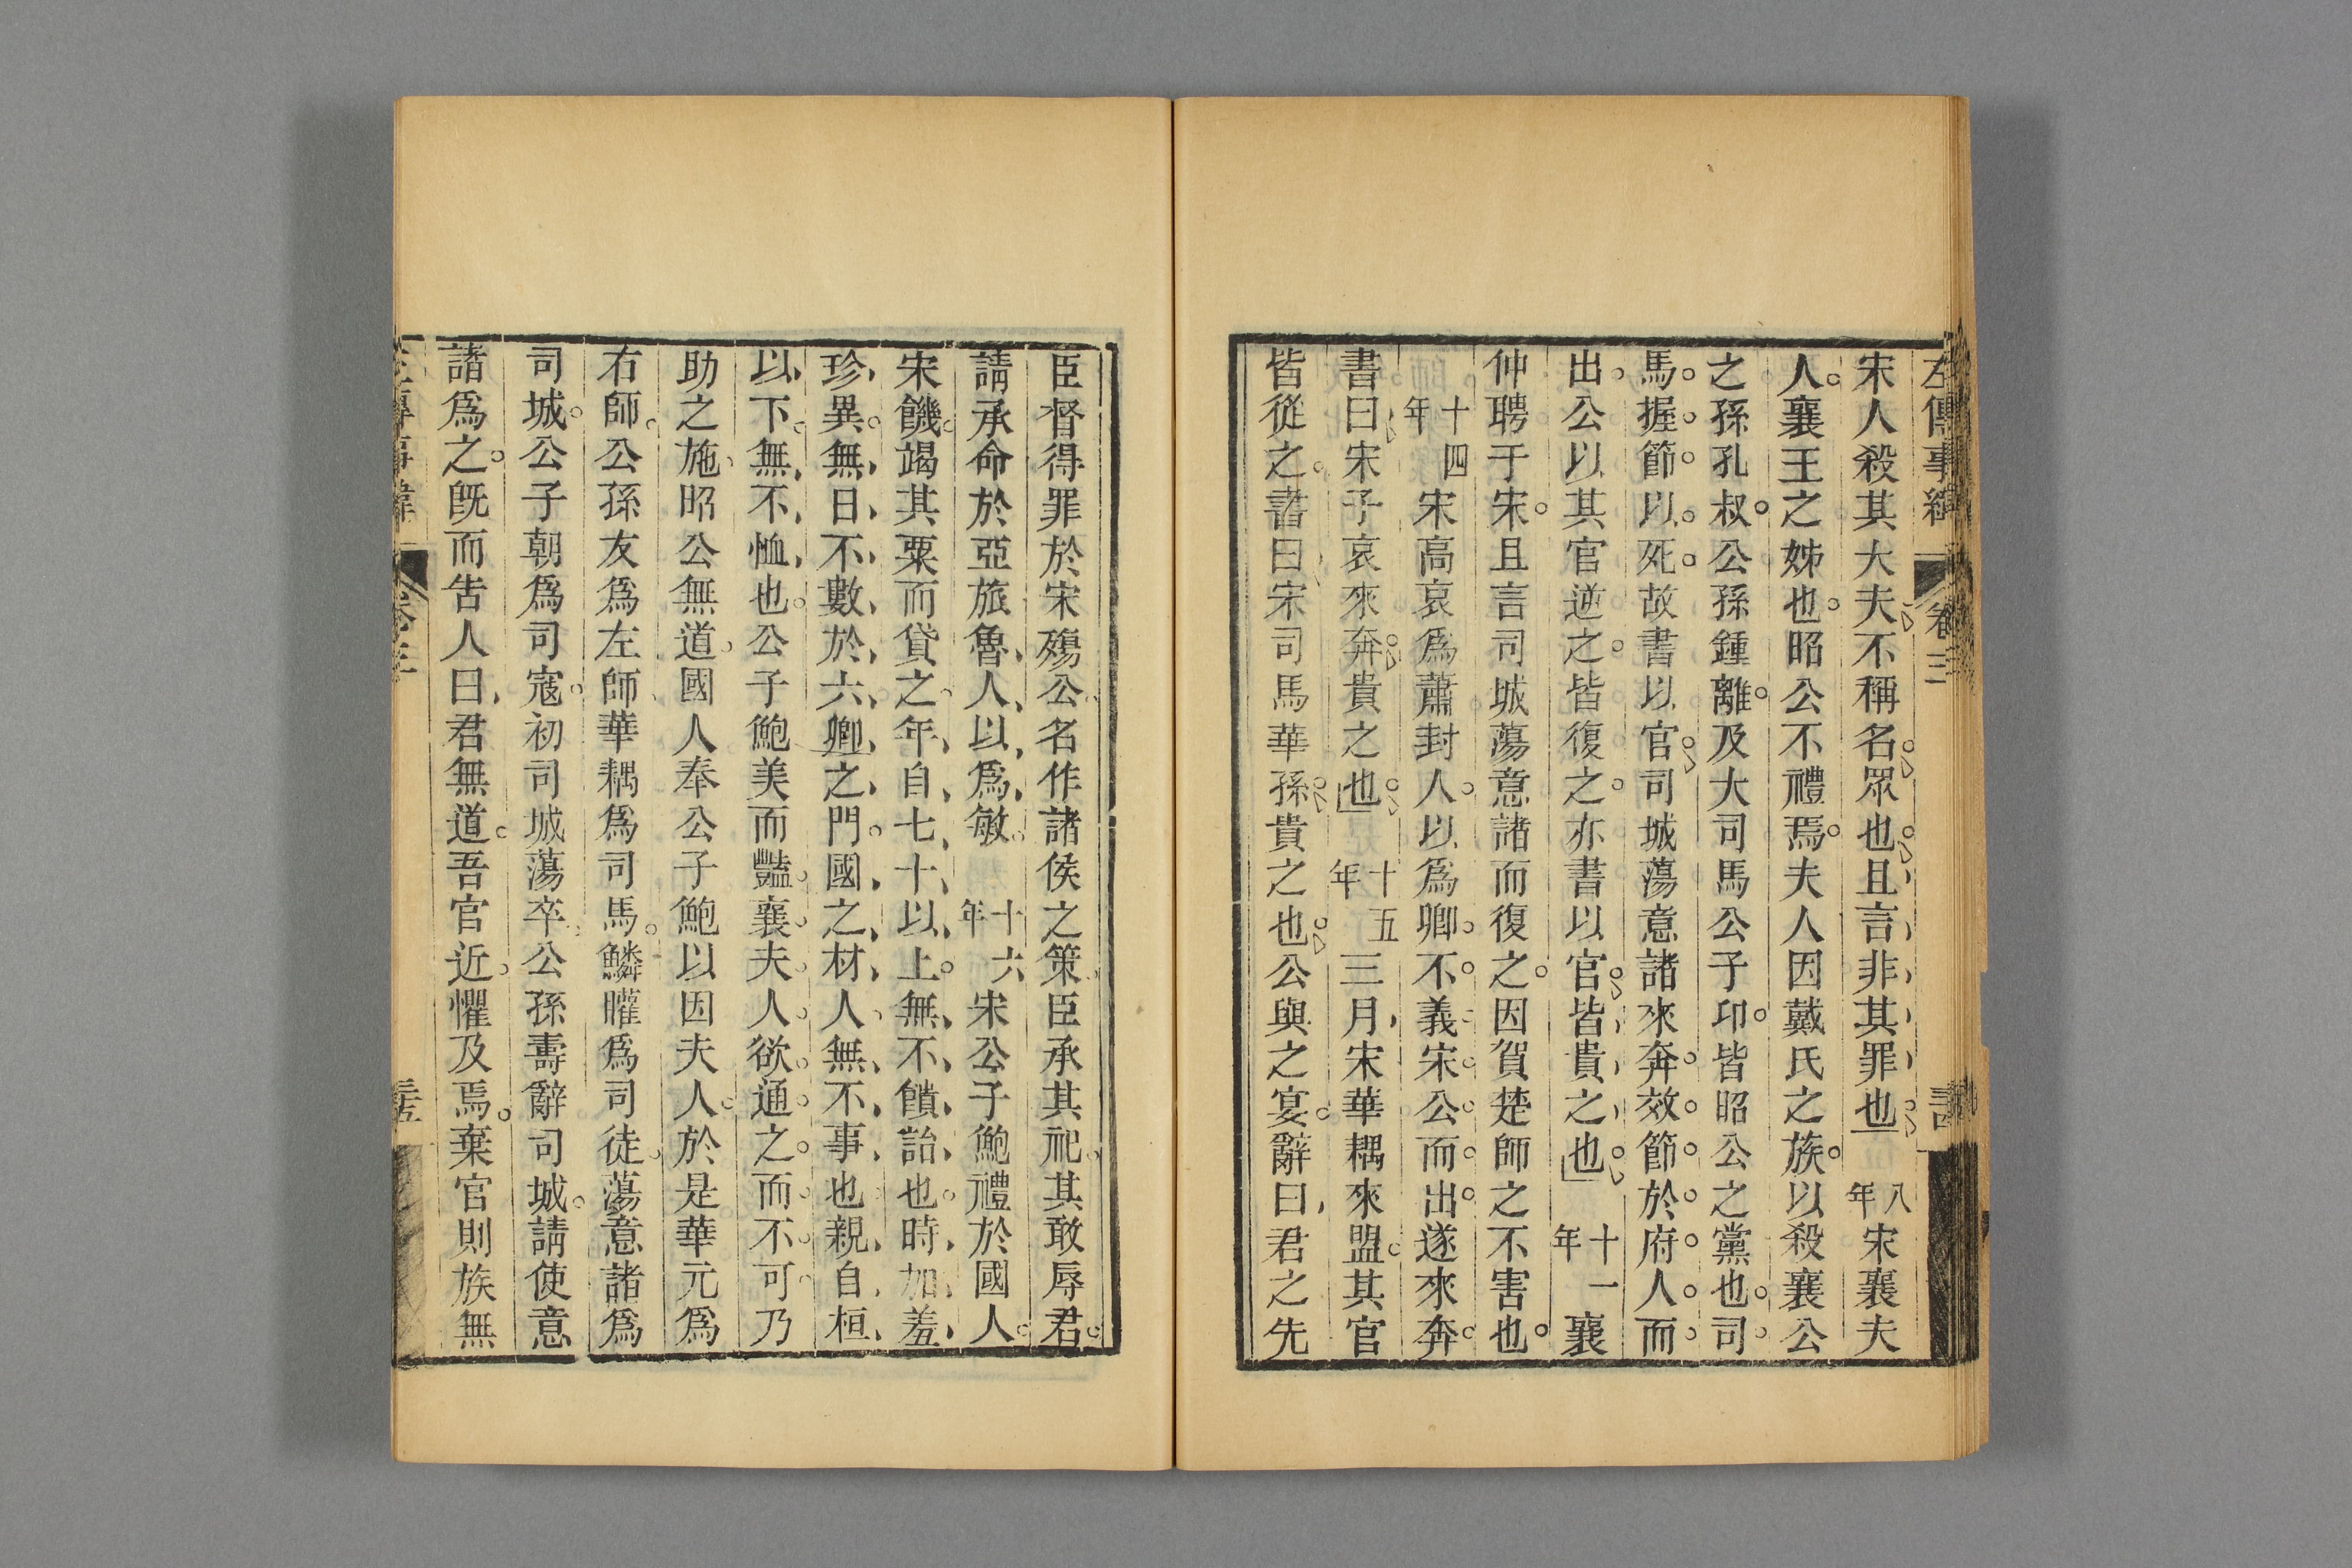 左傳事緯 卷三
宋人殺其大夫不稱名眾也且言非其罪也八年宋襄夫
人襄王之姊也昭公不禮焉夫人因戴氏之族以殺襄公
之孫孔叔公孫鍾離及大司馬公子卬皆昭公之黨也司
馬握節以死故書以官司城蕩意諸來奔效節於府人而
出公以其官逆之皆復之亦書以官皆貴之也十一年襄
仲聘于宋且言司城蕩意諸而復之因賀楚師之不害也
十四年宋高哀為蕭封人以為卿不義宋公而出遂來奔
書曰宋子哀來奔貴之也十五年三月宋華耦來盟其官
皆從之書曰宋司馬華孫貴之也公與之宴辭曰君之先
臣督得罪於宋殤公名作諸侯之策臣承其祀其敢辱君
請承命於亞旅魯人以為敏十六年宋公子鮑禮於國人
宋饑竭其粟而貸之年自七十以上無不饋詒也時加羞
珍異無日不數於六卿之門國之材人無不事也親自桓
以下無不恤也公子鮑美而豔襄夫人欲通之而不可乃
助之施昭公無道國人奉公子鮑以因夫人於是華元為
右師公孫友為左師華耦為司馬鱗矔為司徒蕩意諸為
司城公子朝為司寇初司城蕩卒公孫壽辭司城請使意
諸為之旣而告人曰君無道吾官近懼及焉棄官則族無
左傳事緯 卷三 三五